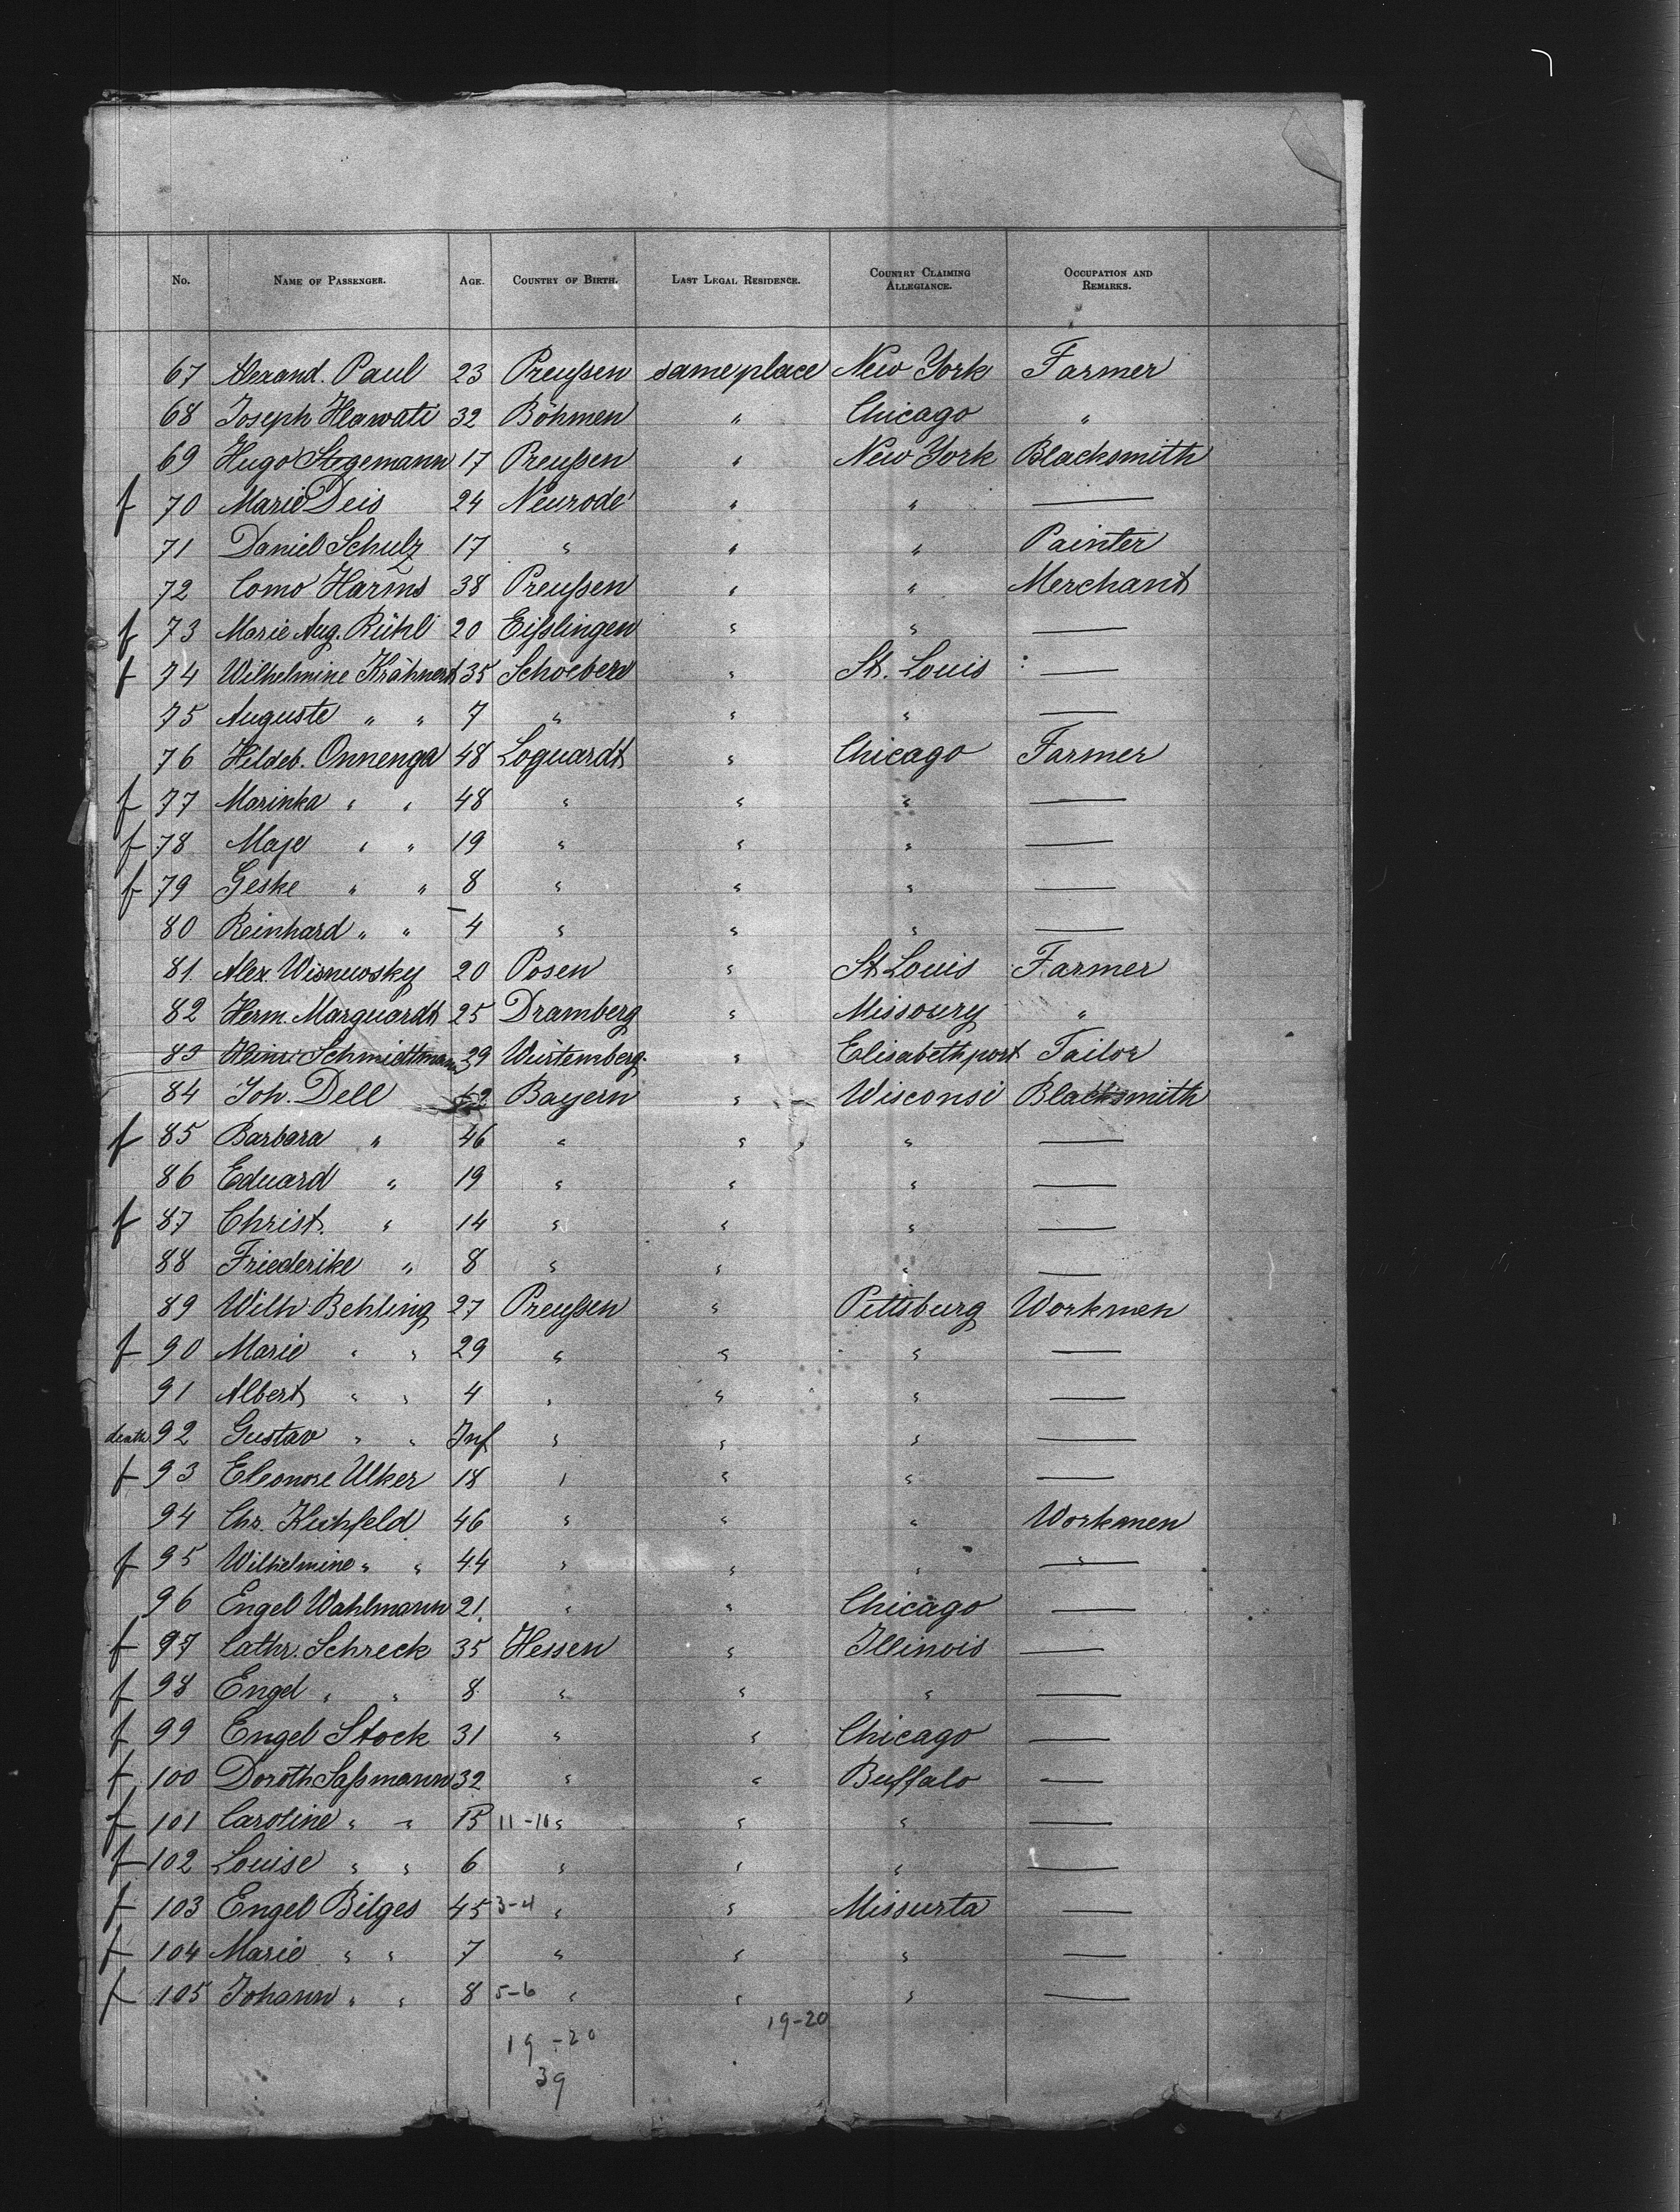 No. Name of Passenger. Age. Country of Birth. Last Legal Residence. Country Claiming Allegiance. Occupation and Remarks.
67 Alexand. Paul 23 Preußen same place New York Farmer
68 Joseph Hawati 32 Böhmen " Chicago "
69 Hugo Stegemann 17 Preußen " New York Blacksmith
f 70 Marie Deis 24 Neurode " " —
71 Daniel Schulz 17 " " " Painter
72 Como Harms 38 Preußen " " Merchant
f 73 Marie Aug. Rühl 20 Eißlingen " " —
f 74 Wilhelmine Krähnert 35 Schoeberw " St. Louis —
75 Auguste " " 7 " " " —
76 Hildeb. Onnenga 48 Loquardt " Chicago Farmer
f 77 Marinka " " 48 " " " —
f 78 Maje " " 19 " " " —
f 79 Geske " " 8 " " " —
80 Reinhard " " 4 " " " —
81. Alex. Wisnuwsky 20 Posen " St Louis Farmer
82 Herm. Marquardt 25 Dramberg " Missoury "
83 Heinr. Schmidtmann 39 Würtemberg " Elisabethport Tailor
84 Joh. Dell Bayern " Wisconsi Blacksmith
f 85 Barbara " 46 " " " —
86 Eduard " 19 " " " —
f 87 Christ. " 14 " " " —
88 Friederike " 8 " " " —
89 Wilh Behling 27 Preußen " Pittsburg Workmen
f 90 Marie " " 29 " " " —
91 Albert " " 4 " " " —
death 92 Gustav " " Inf " " " —
f 93 Eleonore Ulker 18 " " " —
94 Chr. Kuhfeld 46 " " " Workmen
f 95 Wilhelmine " " 44 " " " —
96 Engel Wahlmann 21. " " Chicago —
f 97 Cathr. Schreck 35 Hessen " Illinois —
f 98 Engel " " 8 " " " —
f 99 Engel Stock 31 " " Chicago —
f 100 Doroth Saßmann 32 " " Buffalo —
f 101 Caroline " " 11-10 " " " —
f 102 Louise " " 6 " " " —
f 103 Engel Bilges 45 3-4 " " Missurta —
f 104 Marie " " 7 " " " —
f 105 Johann " " 8 5-6 " " " —
19-20
19-20
39